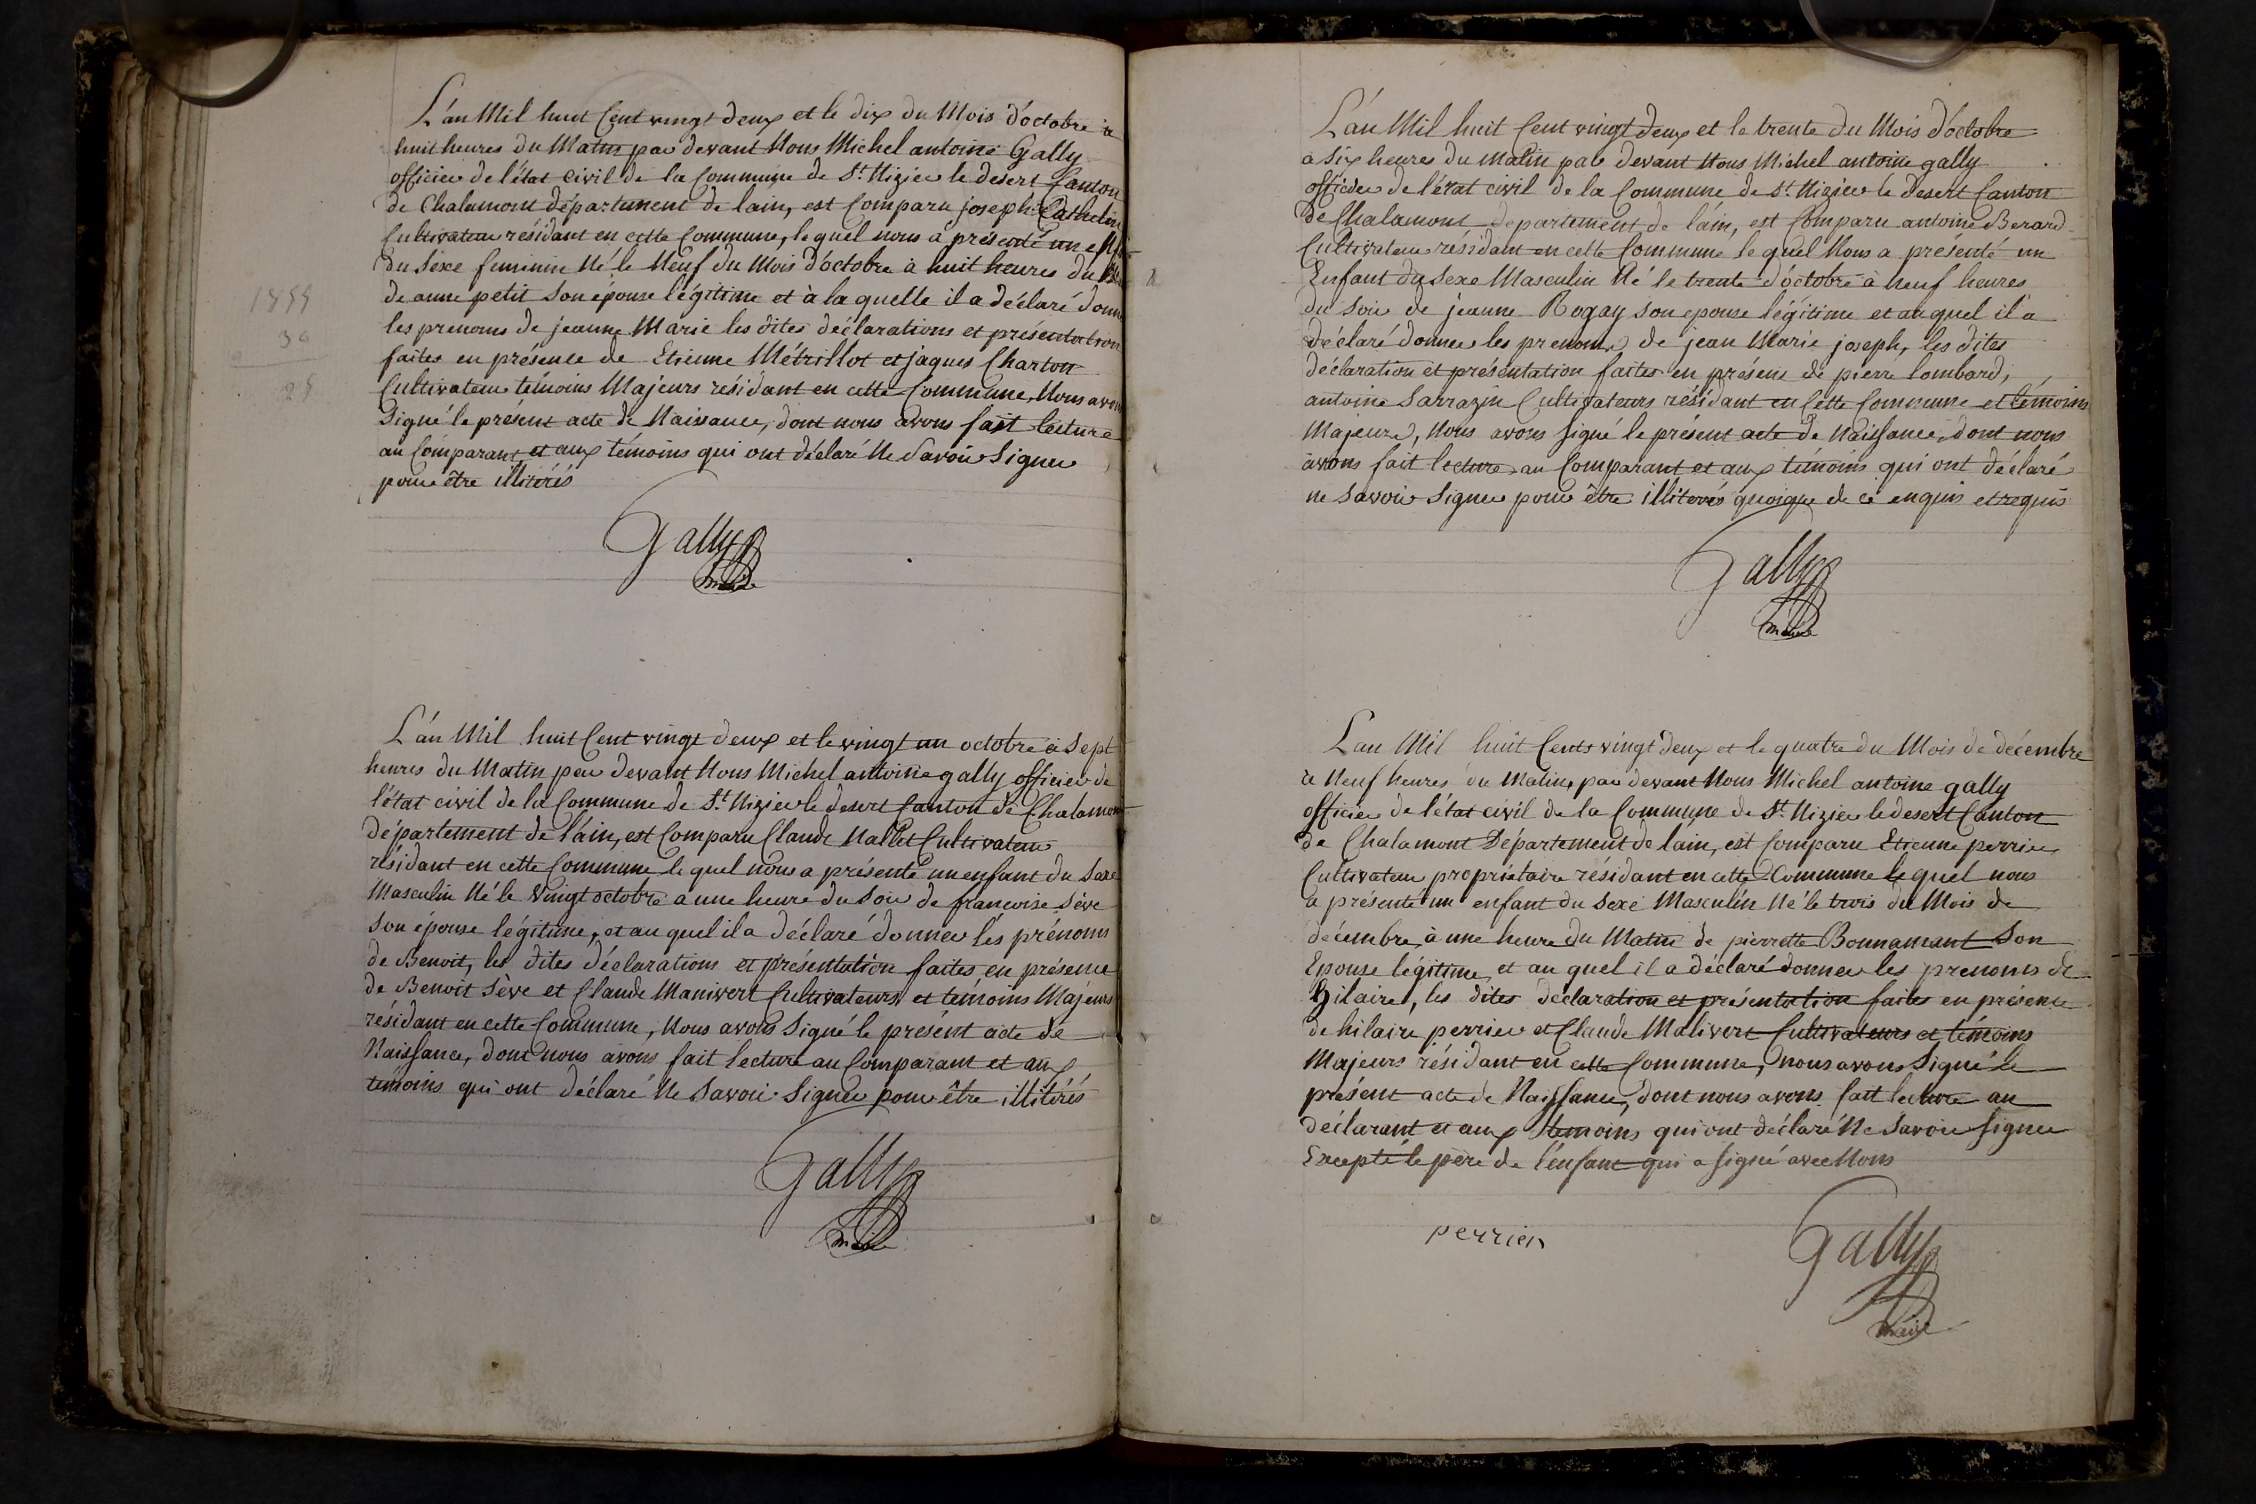 L'an Mil huit Cent vingt deux et le dix du Mois d'octobre à
huit heures du Matin par devant Nous Michel antoine Gally
officier de l'état civil de la Commune de St. Nizier le desert Canton
de Chalamont département de lain, est Comparu joseph Cathelin
Cultivateur résidant en cette Commune, le quel nous a présenté un
du Sexe feminin Né le Neuf du Mois d'octobre à huit heures du
de anne petit Son épouse légitime et à la quelle il a déclaré donner
les prenoms de jeanne Marie les dites déclarations et présentation
faites en présence de Etienne Métrillot et jaques Charton
Cultivateur témoins Majeurs résidant en cette Commune, Nous avons
Signé le présent acte de Naissance, dont nous avons fait lecture
au Comparant et aux témoins qui ont déclaré Ne Savoir Signer
pour être illitérés
Gally
maire
1855
30
25
L'an Mil huit Cent vingt deux et le vingt un octobre à Sept
heures du Matin par devant Nous Michel antoine gally officier de
l'état civil de la Commune de St. Nizier le desert Canton de Chalamont
Département de l'ain, est Comparu Claude Nallet Cultivateur
résidant en cette Commune le quel nous a présenté un enfant du Sexe
Masculin Né le Vingt octobre a une heure du Soir de francoise Sève
Son épouse légitime, et au quel il a déclaré donner les prénoms
de Benoit, les dites déclarations et présentation faites en présence
de Benoit Sève et Claude Manivert Cultivateurs et témoins Majeurs
résidant en cette Commune, Nous avons Signé le présent acte de
Naissance, dont nous avons fait lecture au Comparant et aux
témoins qui ont déclaré Ne Savoir Signer pour être illitérés
Gally
maire
L'an Mil huit Cent vingt deux et le trente du Mois d'octobre
a Six heures du Matin par devant Nous Michel antoine gally
officier de l'état civil de la Commune de St Nizier le desert Canton
de Chalamont, departement de l'ain, est Comparu antoine Berard
Cultivateur résidant en cette Commune le quel Nous a présenté un
Enfant du Sexe Masculin Né le trente d'octobre à neuf heures
du Soir de jeanne Rogay Son epouse légitime et au quel il a
déclaré donner les prenoms de jean Marie joseph, les dites
déclaration et présentation faites en présence de pierre lombard,
antoine Sarrazin Cultivateurs résidant en Cette Commune et témoins
Majeurs, Nous avons Signé le présent acte de Naissance, dont nous
avons fait lecture au Comparant et aux témoins qui ont déclaré
ne Savoir Signer pour être illiterés quoique de ce enquis et requis
Gally
maire
L'an Mil huit Cents vingt deux et le quatre du Mois de décembre
a Neuf heures du Matin, par devant Nous Michel antoine gally
officier de l'état civil de la Commune de St. Nizier le desert Canton
de Chalamont Département de lain, est Comparu Etienne perrier
Cultivateur propriétaire résidant en cette Commune le quel nous
a présenté un enfant du Sexe Masculin Né le trois du Mois de
décembre à une heure du Matin de pierrette Bonnamant Son
Epouse légitime, et au quel il a déclaré donner les prenoms de
Hilaire, les dites déclaration et présentation faites en présence
de hilaire perrier et Claude Malivert Cultivateurs et témoins
Majeurs résidant en cette Commune, nous avons Signé le
présent acte de Naissance, dont nous avons fait lecture au
déclarant et aux témoins qui ont déclaré Ne Savoir signer
Excepté le père de l'enfant qui a signé avec Nous
perrier
Gally
maire